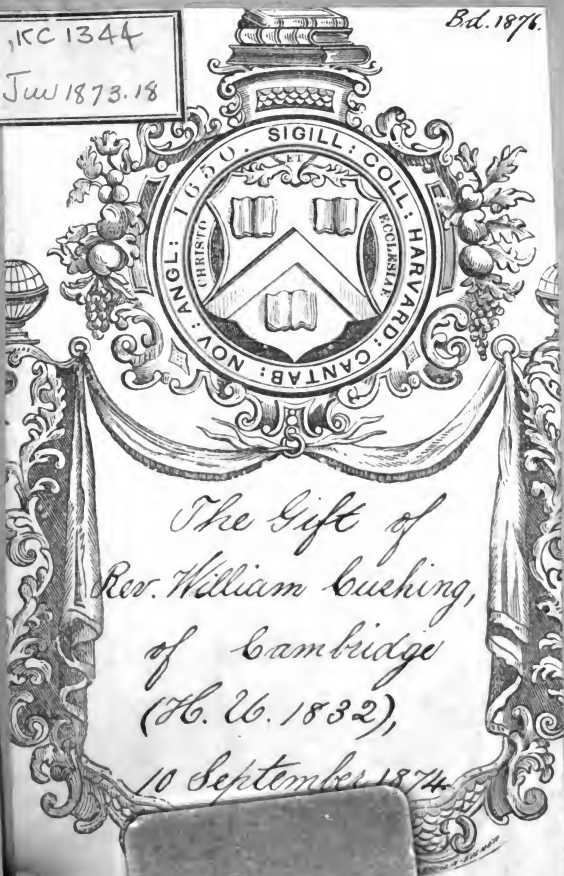 Bd. 1876.
,KC 1344
Juv 1873.18
SIGILL: COLL: HARVARD: CANTAB: NOV: ANGL: 1650.
ET
CHRISTO
ECCLESIAE
The Gift of
Rev. William Cushing,
of Cambridge
(H. U. 1832),
10 September 1874.